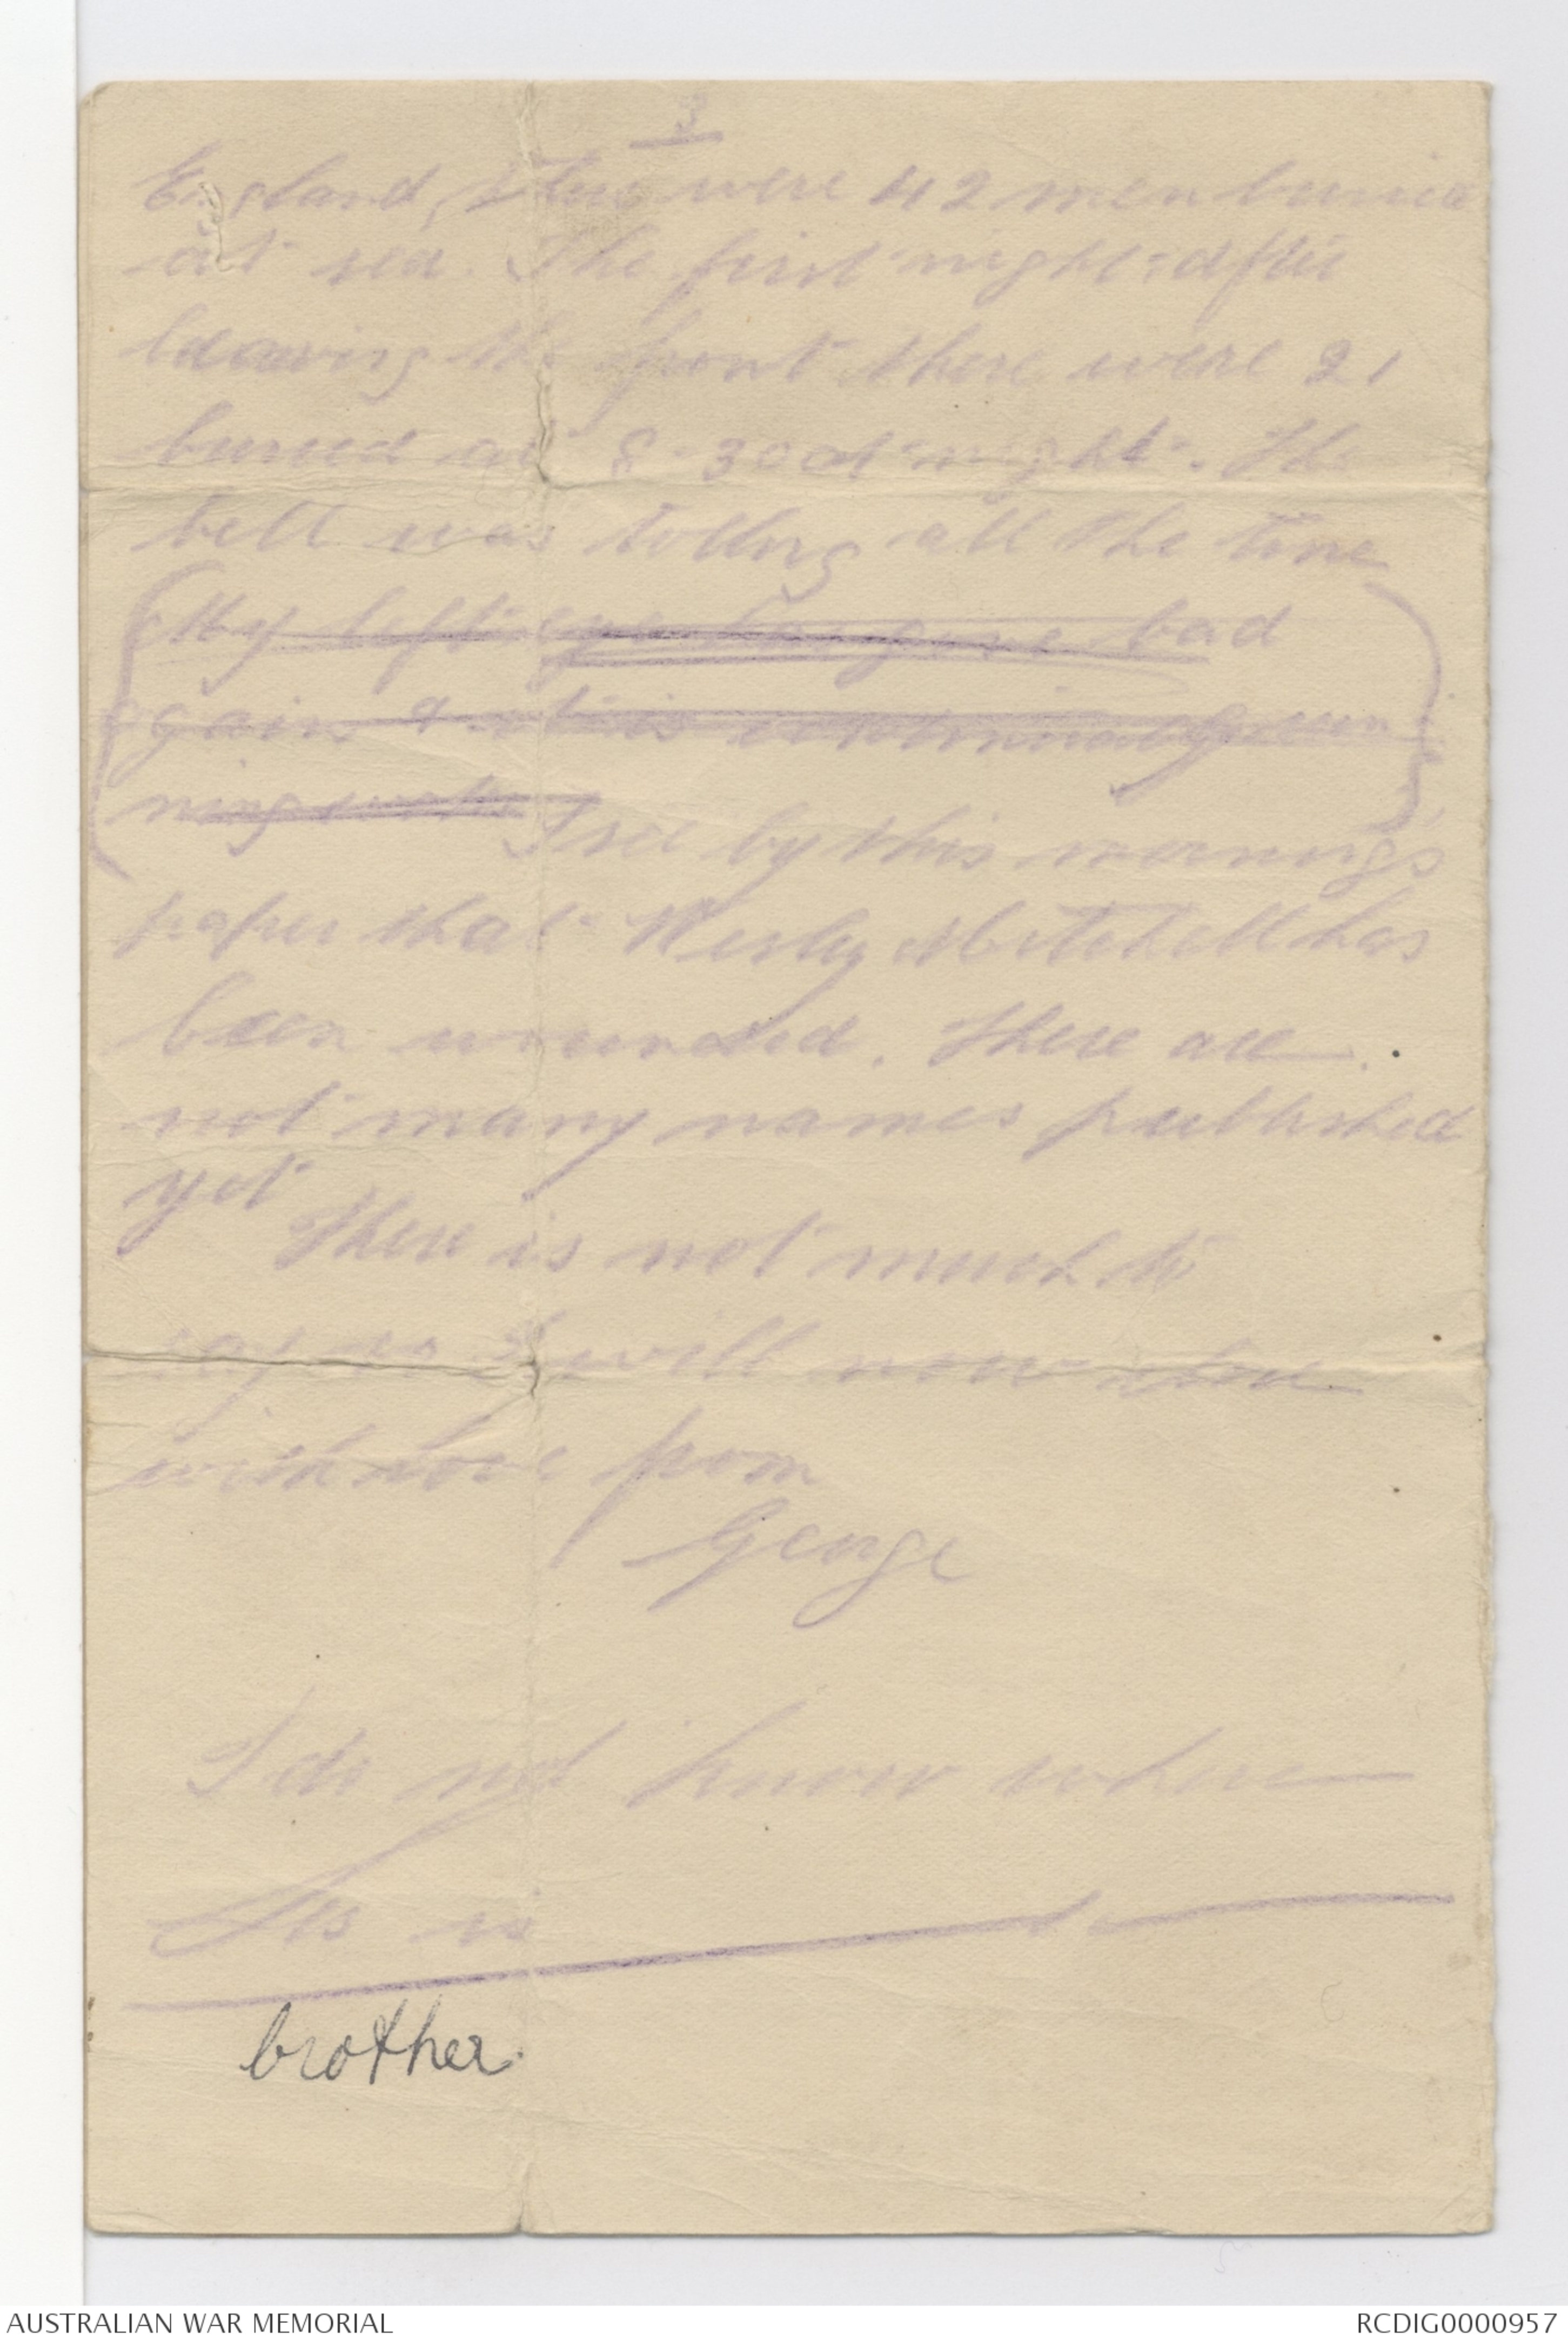 3
England, there were 42 men buried
at sea. The first night after
leaving the front there were 21
buried at 8-30 at night. The
bell was tolling all the time
(My left eye has gone bad
again & it is continually run
ning water) I see by this mornings
paper that Wesley Mitchell has
been wounded. There are
not many names published
yet
There is not much to
say so I will now close
with love from
George
I do not know where
Les is
brother.
AUSTRALIAN WAR MEMORIAL
RCDIG0000957